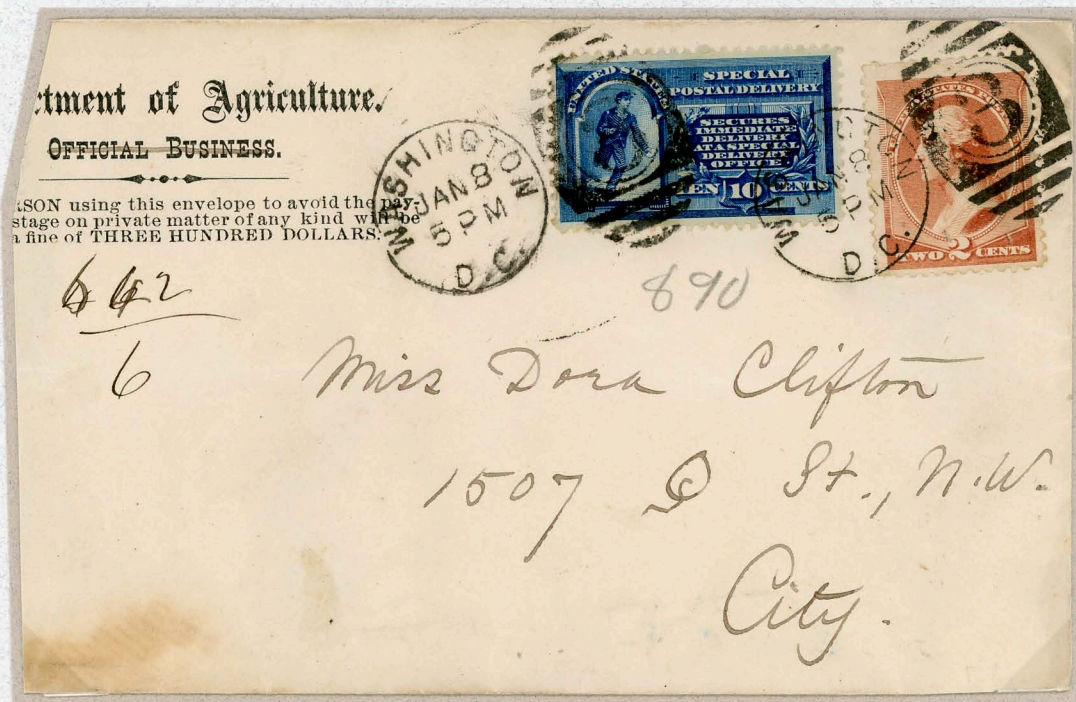 rtment of Agriculture.
OFFICIAL BUSINESS.
RSON using this envelope to avoid the pay-
stage on private matter of any kind will be
a fine of THREE HUNDRED DOLLARS.
WASHINGTON
JAN 8
5 PM
D.C.
UNITED STATES
SPECIAL
POSTAL DELIVERY
SECURES
IMMEDIATE
DELIVERY
AT A SPECIAL
DELIVERY
OFFICE
TEN 10 CENTS
WASHINGTON
JAN 8
5 PM
D.C.
TWO 2 CENTS
890
6
Miss Dora Clifton
1507 Q St., N.W.
City.